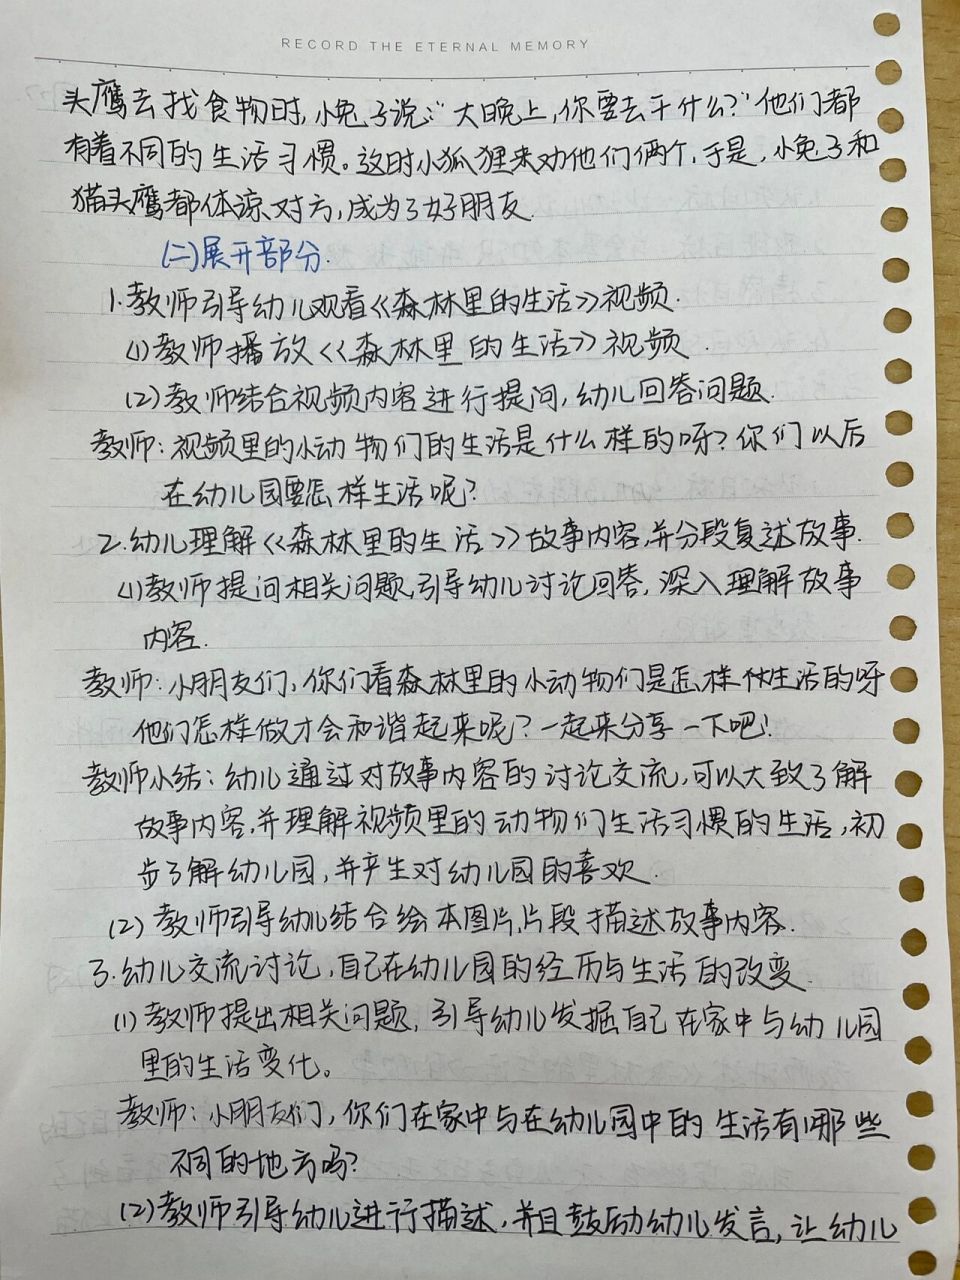 RECORD THE ETERNAL MEMORY
头鹰去找食物时,小兔子说:"大晚上,你要去干什么?"他们都
有着不同的生活习惯。这时小狐狸来劝他们俩个,于是,小兔子和
猫头鹰都体谅对方,成为了好朋友.
(二)展开部分.
1.教师引导幼儿观看《森林里的生活》视频.
(1)教师播放《森林里的生活》视频.
(2)教师结合视频内容进行提问,幼儿回答问题.
教师:视频里的小动物们的生活是什么样的呀?你们以后
在幼儿园要怎样生活呢?
2.幼儿理解《森林里的生活》故事内容,并分段复述故事.
(1)教师提问相关问题,引导幼儿讨论回答,深入理解故事
内容.
教师:小朋友们,你们看森林里的小动物们是怎样生活的呀
他们怎样做才会和谐起来呢?一起来分享一下吧!
教师小结:幼儿通过对故事内容的讨论交流,可以大致了解
故事内容,并理解视频里的动物们生活习惯的生活,初
步了解幼儿园,并产生对幼儿园的喜欢.
(2)教师引导幼儿结合绘本图片,片段描述故事内容.
3.幼儿交流讨论,自己在幼儿园的经历与生活的改变.
(1)教师提出相关问题,引导幼儿发掘自己在家中与幼儿园
里的生活变化。
教师:小朋友们,你们在家中与在幼儿园中的生活有哪些
不同的地方吗?
(2)教师引导幼儿进行描述,并且鼓励幼儿发言,让幼儿